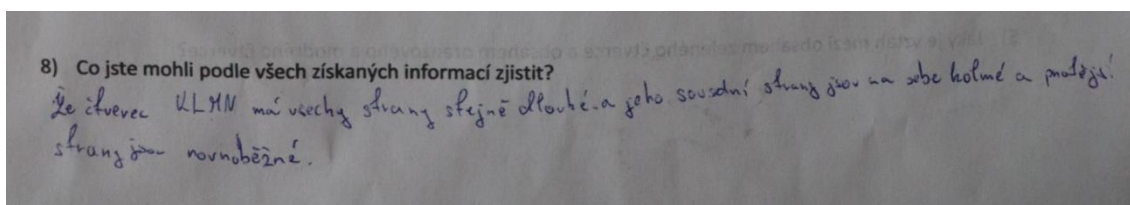 8) Co jste mohli podle všech získaných informací zjistit?
Že čtverec KLMN má všechy strany stejně dlouhé a jeho sousední strany jsou na sobe kolmé a protější
strany jsou rovnoběžné.